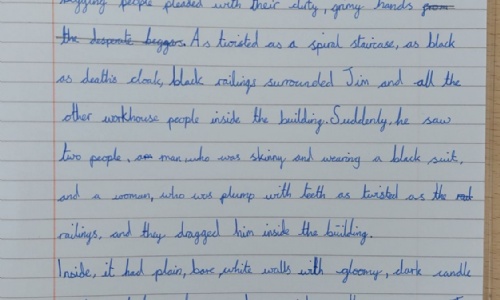 begging people pleased with their duty, grimy hands from
the desperate beggars. As twisted as a spiral staircase, as black
as death's cloak, black railings surrounded Jim and all the
other workhouse people inside the building. Suddenly, he saw
two people, a man, who was skinny and wearing a black suit,
and a woman, who was plump with teeth as twisted as the
railings, and they dragged him inside the building.
Inside, it had plain, bare, white walls with gloomy, dark candle